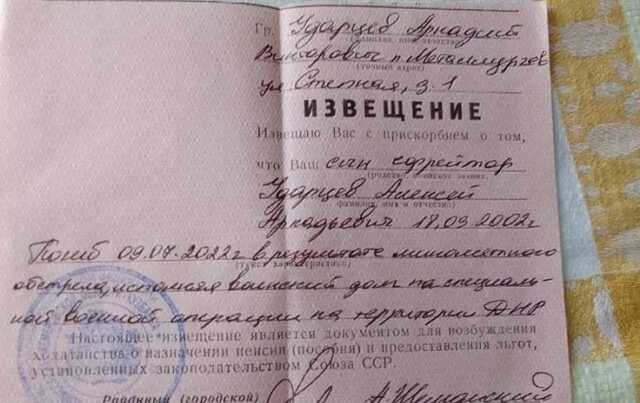 Гр. Ударцев Аркадий
(фамилия, имя, отчество)
Викторович п. Металлургов
(точный адрес)
ул. Степная, 3-1
ИЗВЕЩЕНИЕ
Извещаю Вас с прискорбием о том,
что Ваш сын ефрейтор
(родство, воинское звание,
Ударцев Алексей
фамилия, имя и отчество)
Аркадьевич 18.03.2002г
Погиб 09.07.2022г в результате минометного
(текст характеристики)
обстрела, исполняя воинский долг на специаль-
ной военной операции на территории ДНР
Настоящее извещение является документом для возбуждения
ходатайства о назначении пенсии (пособия) и предоставления льгот,
установленных законодательством Союза ССР.
Районный (городской)